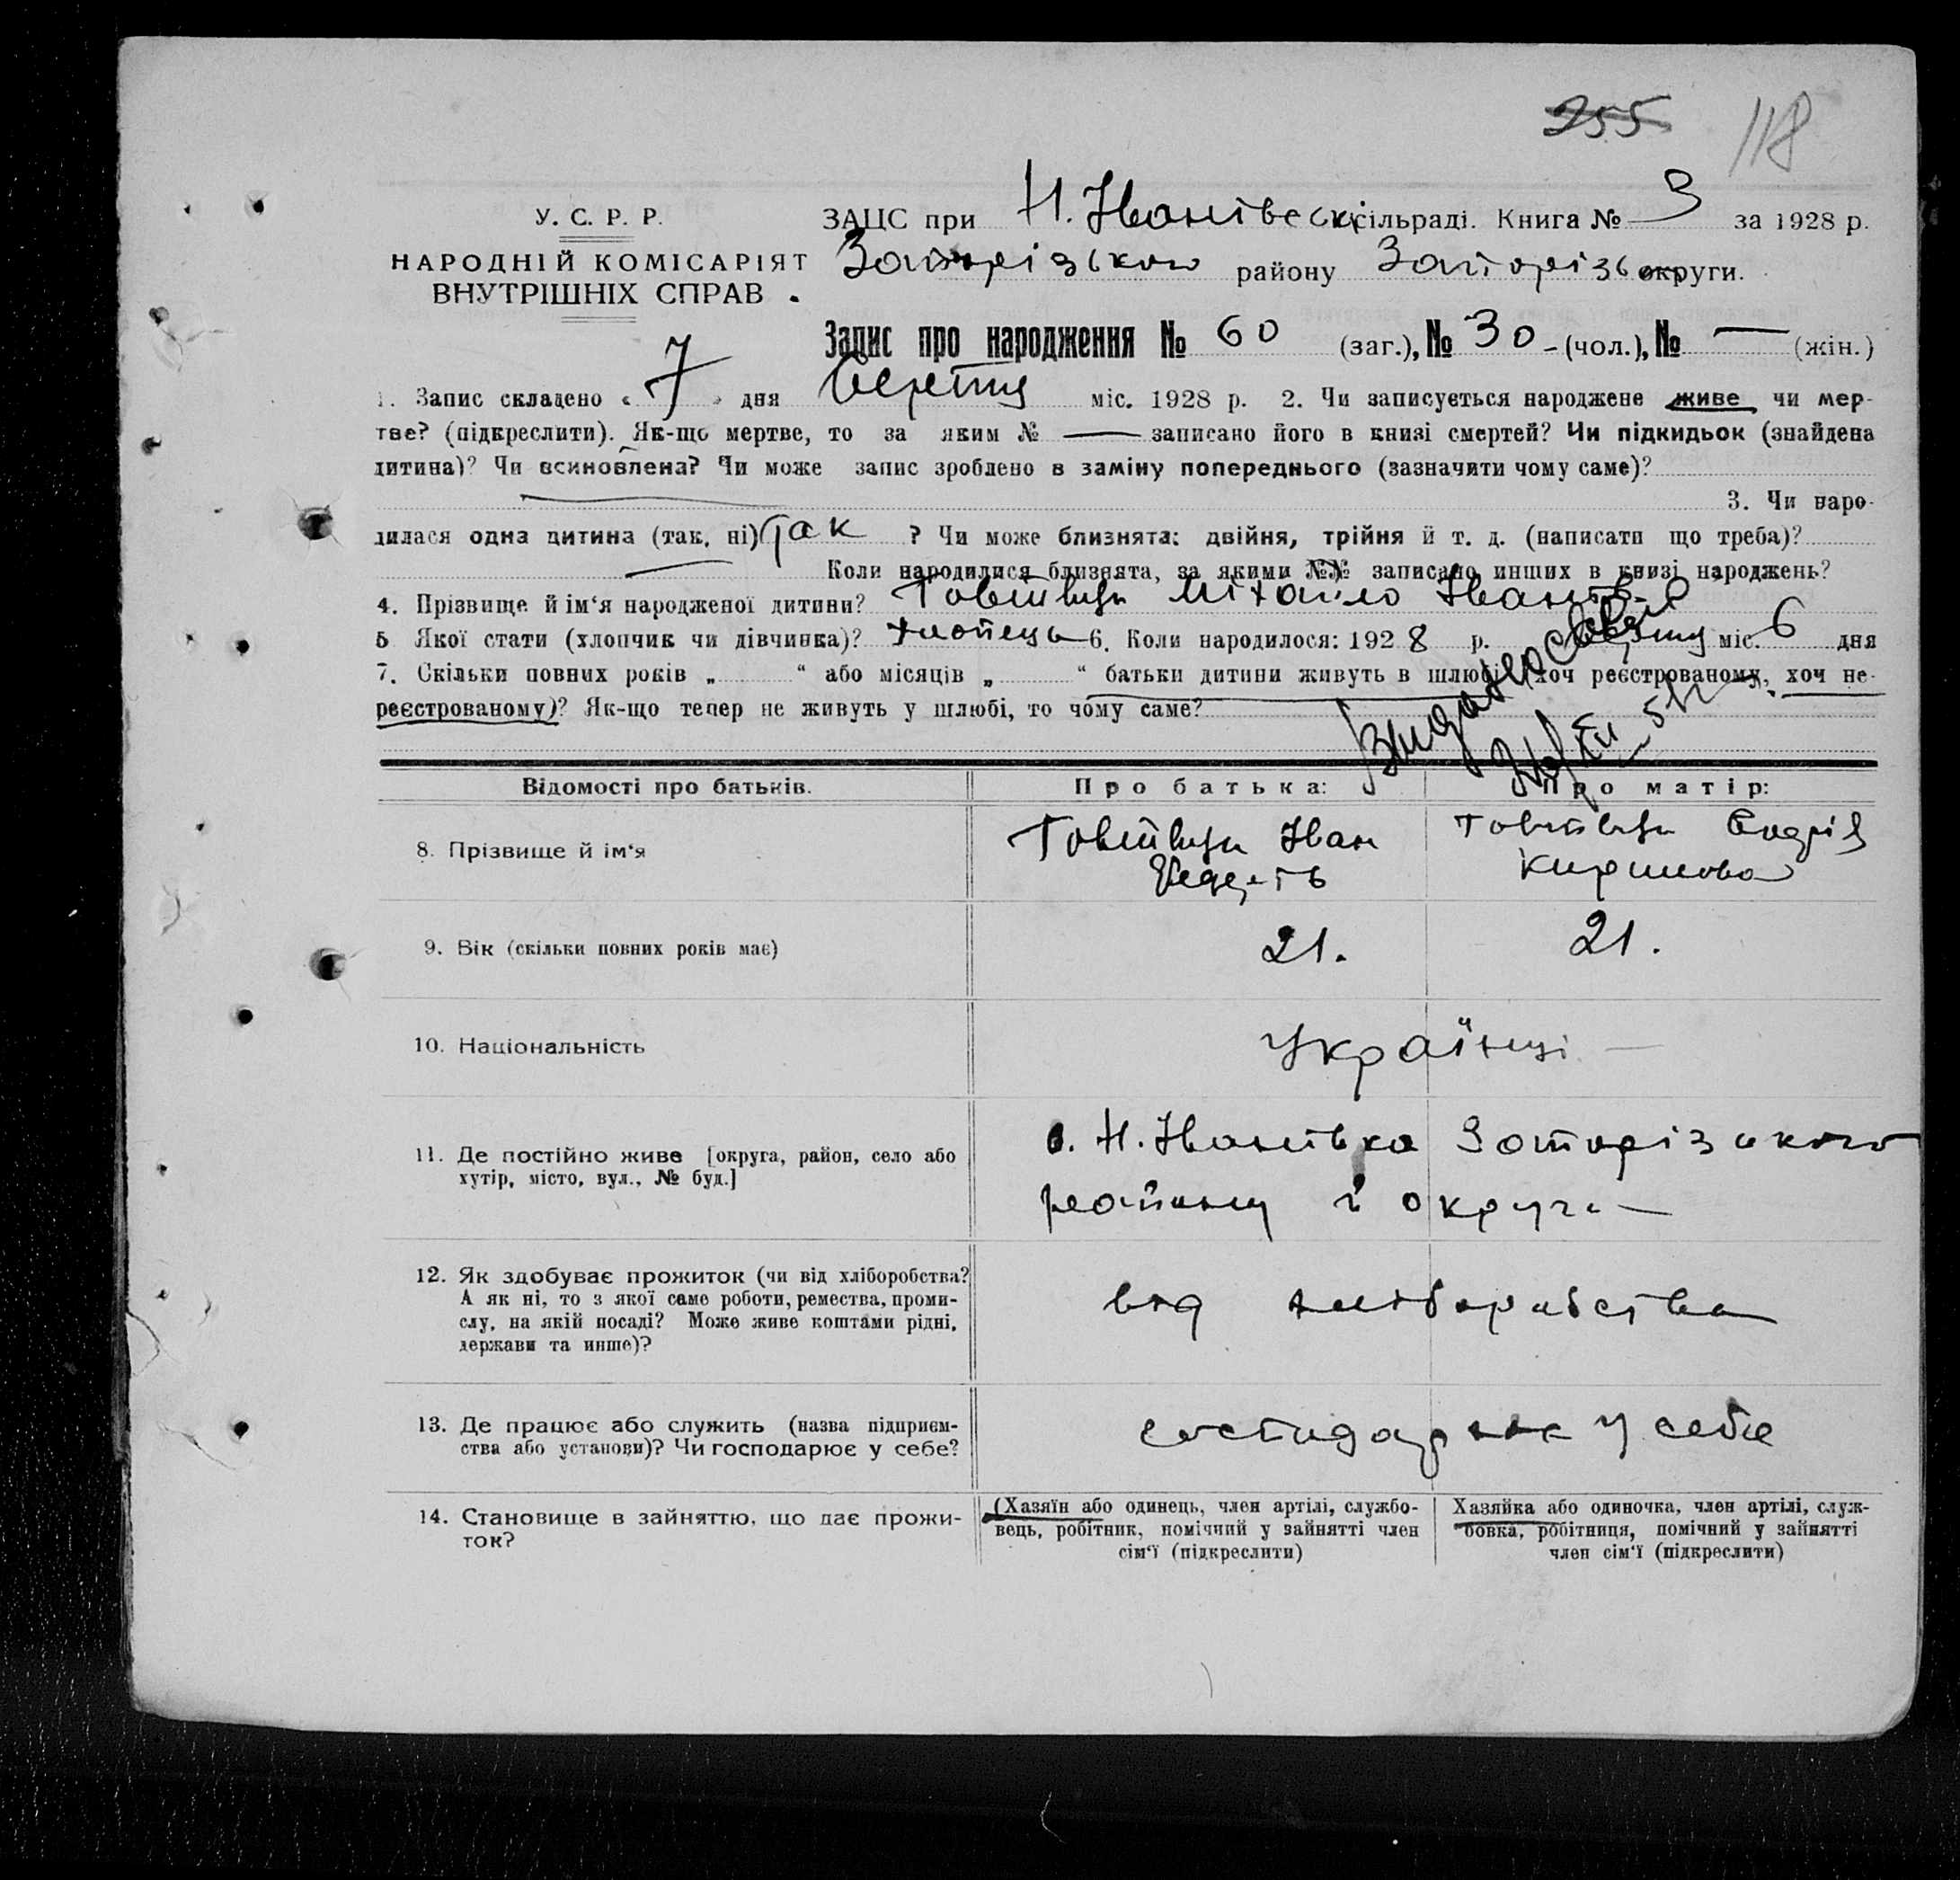 255 118
У. С. Р. Р.
НАРОДНІЙ КОМІСАРІЯТ
ВНУТРІШНІХ СПРАВ
ЗАЦС при Н. Іванівській сільраді. Книга № 3 за 1928 р.
Запорізького району Запорізьк округи.
Запис про народження № 60 (заг.), № 30 - (чол.), № — (жін.)
1. Запис складено « 7 » дня березня міс. 1928 р. 2. Чи записується народжене живе чи мер-
тве? (підкреслити). Як-що мертве, то за яким № — записано його в книзі смертей? Чи підкидьок (знайдена
дитина)? Чи всиновлена? Чи може запис зроблено в заміну попереднього (зазначити чому саме)?
3. Чи наро-
дилася одна дитина (так, ні) Так ? Чи може близнята: двійня, трійня й т. д. (написати що треба)?
Коли народилися близнята, за якими №№ записано инших в книзі народжень?
4. Прізвище й ім‘я народженої дитини? Михайло Іванів
5 Якої стати (хлопчик чи дівчинка)? хлопець 6. Коли народилося: 1928 р. міс. 6 дня
7. Скільки повних років „ “ або місяців „ “ батьки дитини живуть в шлюбі (хоч реєстрованому, хоч не-
реєстрованому)? Як-що тепер не живуть у шлюбі, то чому саме?
Відомості про батьків. Про батька: Про матір:
8. Прізвище й ім‘я
Іван
9. Вік (скільки повних років має) 21. 21.
10. Національність Українці —
11. Де постійно живе [округа, район, село або
хутір, місто, вул., № буд.]
с. Н. Іванівка Запорізького
району й округи —
12. Як здобуває прожиток (чи від хліборобства?
А як ні, то з якої саме роботи, ремества, проми-
слу, на якій посаді? Може живе коштами рідні,
держави та инше)?
від хліборобства
13. Де працює або служить (назва підприєм-
ства або установи)? Чи господарює у себе?
господарює у себе
14. Становище в зайняттю, що дає прожи-
ток?
(Хазяїн або одинець, член артілі, службо-
вець, робітник, помічний у зайнятті член
сім‘ї (підкреслити)
Хазяйка або одиночка, член артілі, служ-
бовка, робітниця, помічний у зайнятті
член сім‘ї (підкреслити)